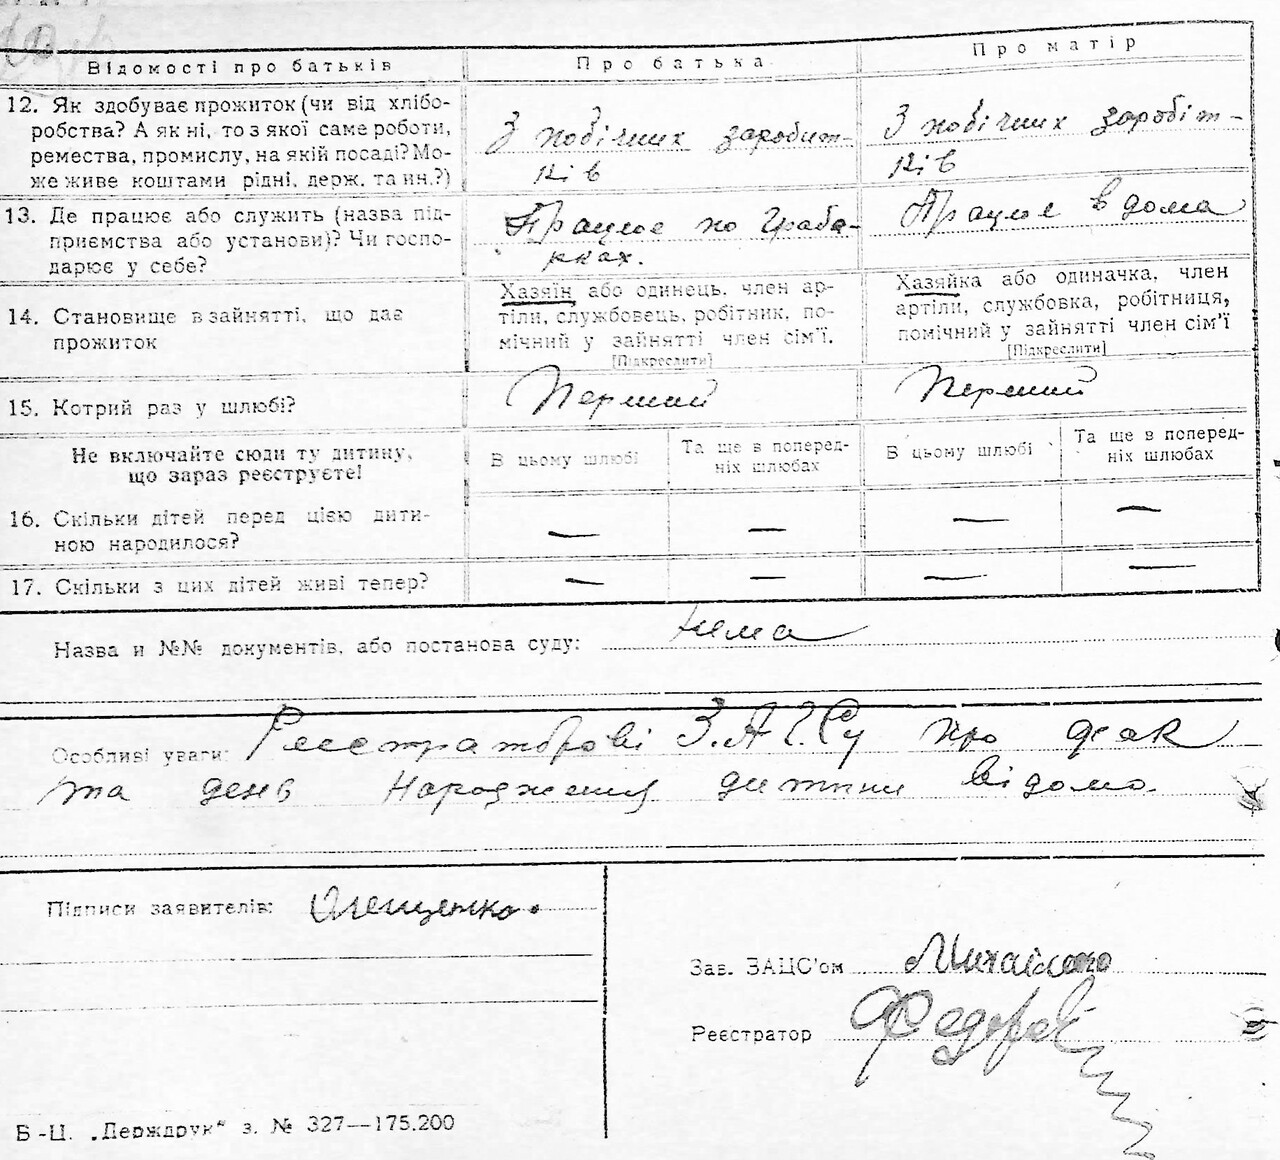 Відомості про батьків
Про батька
Про матір
12. Як здобуває прожиток (чи від хлібо-
робства? А як ні, то з якої саме роботи,
ремества, промислу, на якій посаді? Мо-
же живе коштами рідні, держ. та ин.?)
З побічних заробит-
ків
З побічних заробіт-
ків
13. Де працює або служить (назва під-
приємства або установи)? Чи госпо-
дарює у себе?
Працює по граба-
рках.
Працює вдома
14. Становище в зайнятті, що дає
прожиток
Хазяїн або одинець, член ар-
тіли, службовець, робітник, по-
мічний у зайнятті член сім'ї.
[Підкреслити]
Хазяйка або одиначка, член
артіли, службовка, робітниця,
помічний у зайнятті член сім'ї
[Підкреслити]
15. Котрий раз у шлюбі?
Перший
Перший
Не включайте сюди ту дитину,
що зараз реєструєте!
В цьому шлюбі
Та ще в поперед-
ніх шлюбах
В цьому шлюбі
Та ще в поперед-
ніх шлюбах
16. Скільки дітей перед цією дити-
ною народилося?
— — — —
17. Скільки з цих дітей живі тепер?
— — — —
Назва и №№ документів, або постанова суду: нема
Особливі уваги: Реєстраторові З.А.Г.Су про
та день народження дитини відомо.
Підписи заявителів:
Зав. ЗАЦС'ом
Реєстратор Федоров
Б-Ц. „Держдрук“ з. № 327—175.200